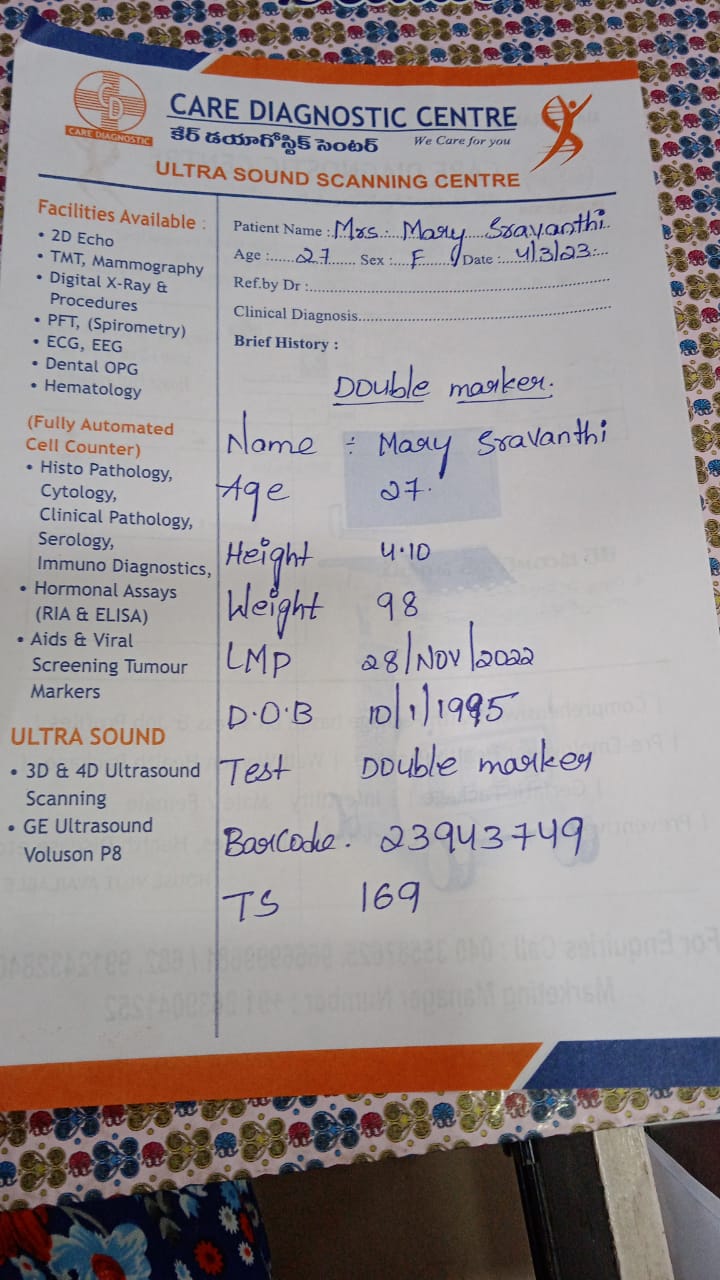 CD
CARE DIAGNOSTIC
CARE DIAGNOSTIC CENTRE
కేర్ డయాగ్నోస్టిక్ సెంటర్
We Care for you
ULTRA SOUND SCANNING CENTRE
Facilities Available :
• 2D Echo
• TMT, Mammography
• Digital X-Ray &
Procedures
• PFT, (Spirometry)
• ECG, EEG
• Dental OPG
• Hematology
(Fully Automated
Cell Counter)
• Histo Pathology,
Cytology,
Clinical Pathology,
Serology,
Immuno Diagnostics,
• Hormonal Assays
(RIA & ELISA)
• Aids & Viral
Screening Tumour
Markers
ULTRA SOUND
• 3D & 4D Ultrasound
Scanning
• GE Ultrasound
Voluson P8
Patient Name : Mrs. Mary Sravanthi
Age : 27 Sex : F Date : 4/3/23
Ref.by Dr :
Clinical Diagnosis
Brief History :
Double marker.
Name : Mary Sravanthi
Age 27.
Height 4.10
Weight 98
LMP 28/Nov/2022
D.O.B 10/1/1995
Test Double marker
Barcode. 23943749
TS 169